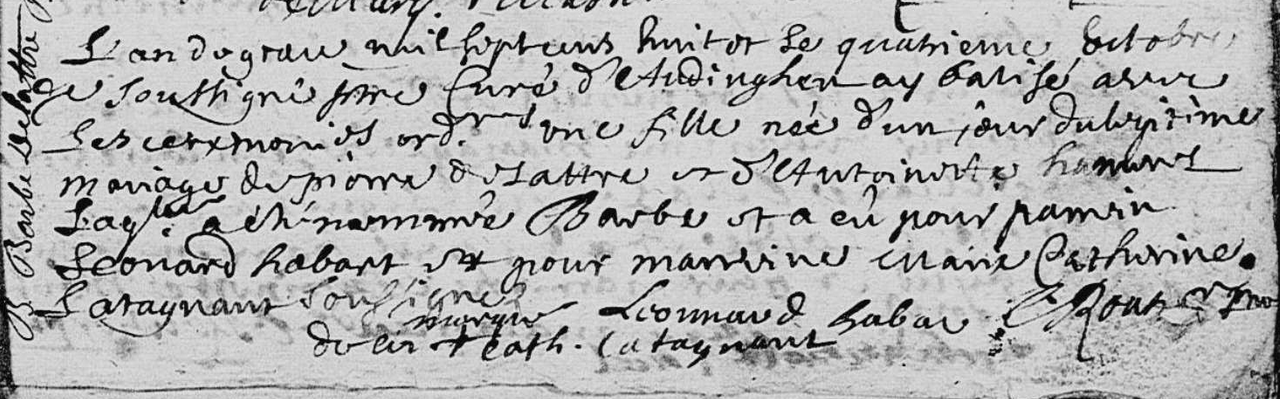 B Barbe Delattre
L'an de grace mil sept cens huit et le quatrieme octobre
Je soussigné ptre Curé d'Audinghen ay batisé avec
les ceremonies ord.res une fille née d'un jour du legitime
mariage de pierre delattre et d'Antoinette hamerel
laq.lle a été nommée Barbe et a eû pour parein
Leonard habart et pour mareine Marie Catherine
Latagnant soussignez
marque
de M + Cath. Latagnant Leonnard habar